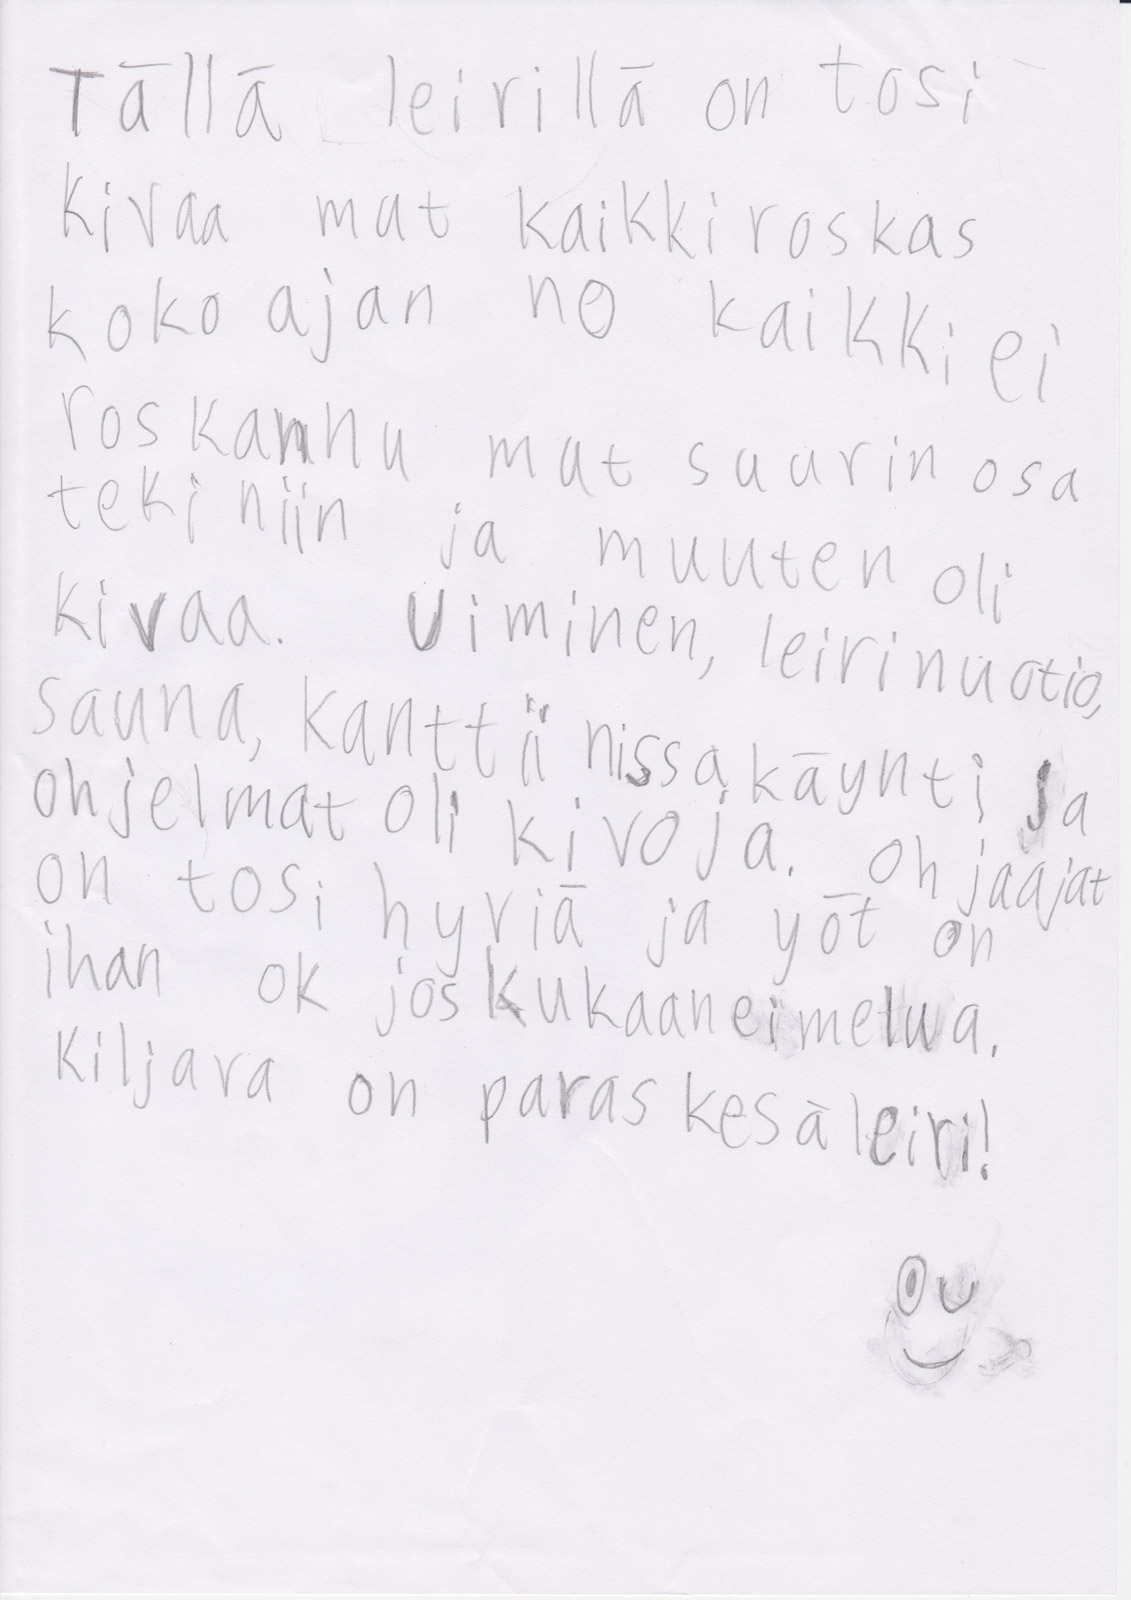 Tällä leirillä on tosi
kivaa mut kaikki roskas
koko ajan no kaikki ei
roskannu mut suurin osa
teki niin ja muuten oli
kivaa. Uiminen, leirinuotio,
sauna, kanttiinissa käynti ja
ohjelmat oli kivoja. Ohjaajat
on tosi hyviä ja yöt on
ihan ok jos kukaan ei melua.
Kiljava on paras kesäleiri!